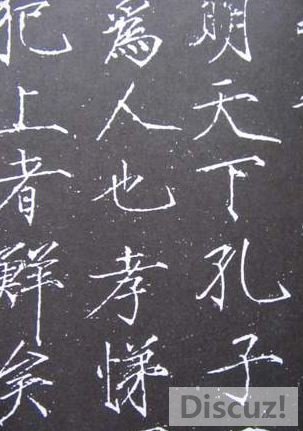 明天下孔子
為人也孝悌
犯上者鮮矣
Discuz!